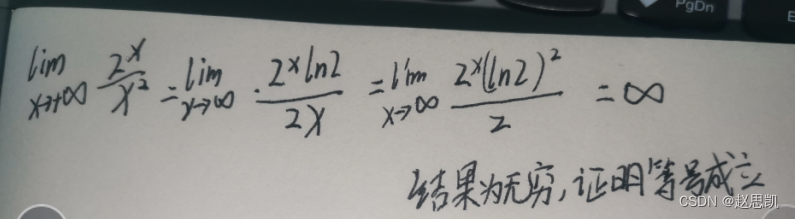 PgDn
E
lim x→+∞ 2^x/x^2 = lim x→∞ 2^x ln2/2x = lim x→∞ 2^x(ln2)^2/2 = ∞
结果为无穷,证明等号成立
CSDN @赵思凯